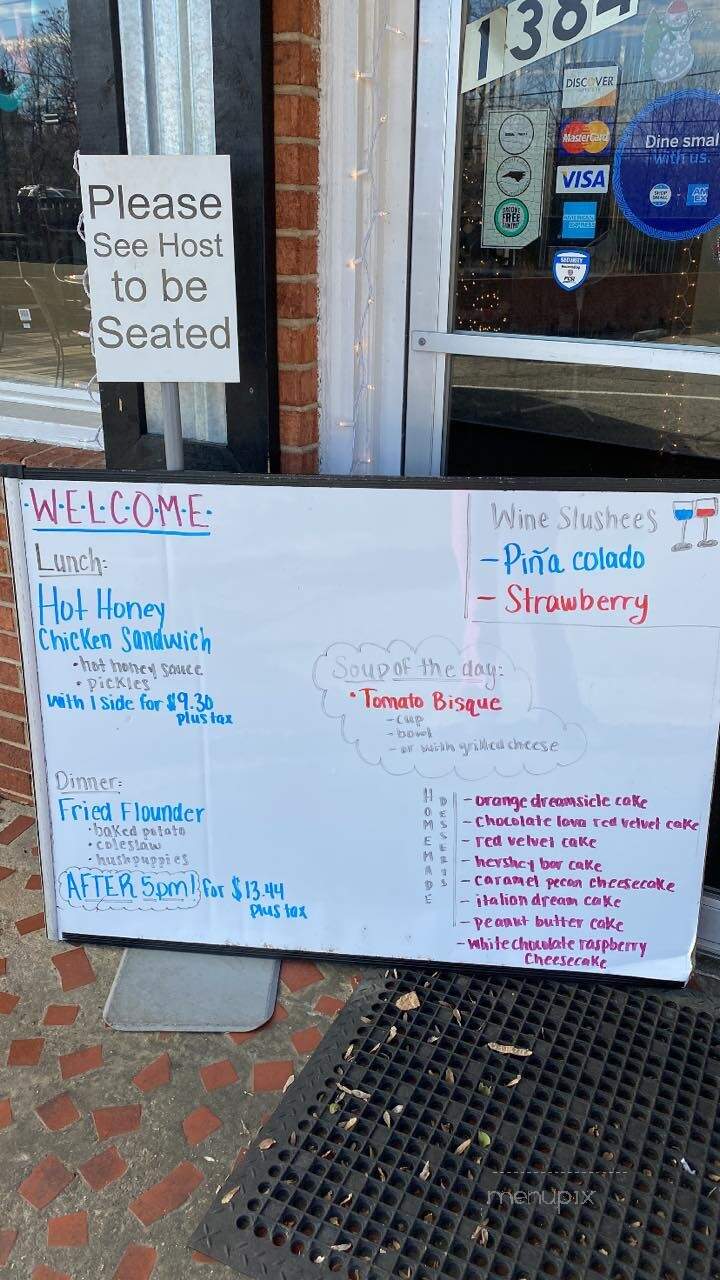 1384
DISCOVER
MasterCard
VISA
AMERICAN EXPRESS
Dine smal
with us.
SHOP SMALL
AM EX
FREE
SECURITY
Please
See Host
to be
Seated
W•E•L•C•O•M•E
Lunch:
Hot Honey
Chicken Sandwich
• hot honey sauce
• pickles
with 1 side for $9.30
plus tax
Dinner:
Fried Flounder
• baked potato
• coleslaw
• hushpuppies
AFTER 5pm! for $13.44
plus tax
Wine Slushees
- Piña colado
- Strawberry
Soup of the day:
• Tomato Bisque
- cup
- bowl
- or with grilled cheese
HOMEMADE
DESSERTS
- orange dreamsicle cake
- chocolate lava red velvet cake
- red velvet cake
- hershey bar cake
- caramel pecan cheesecake
- italian dream cake
- peanut butter cake
- white chocolate raspberry
Cheesecake
menupix